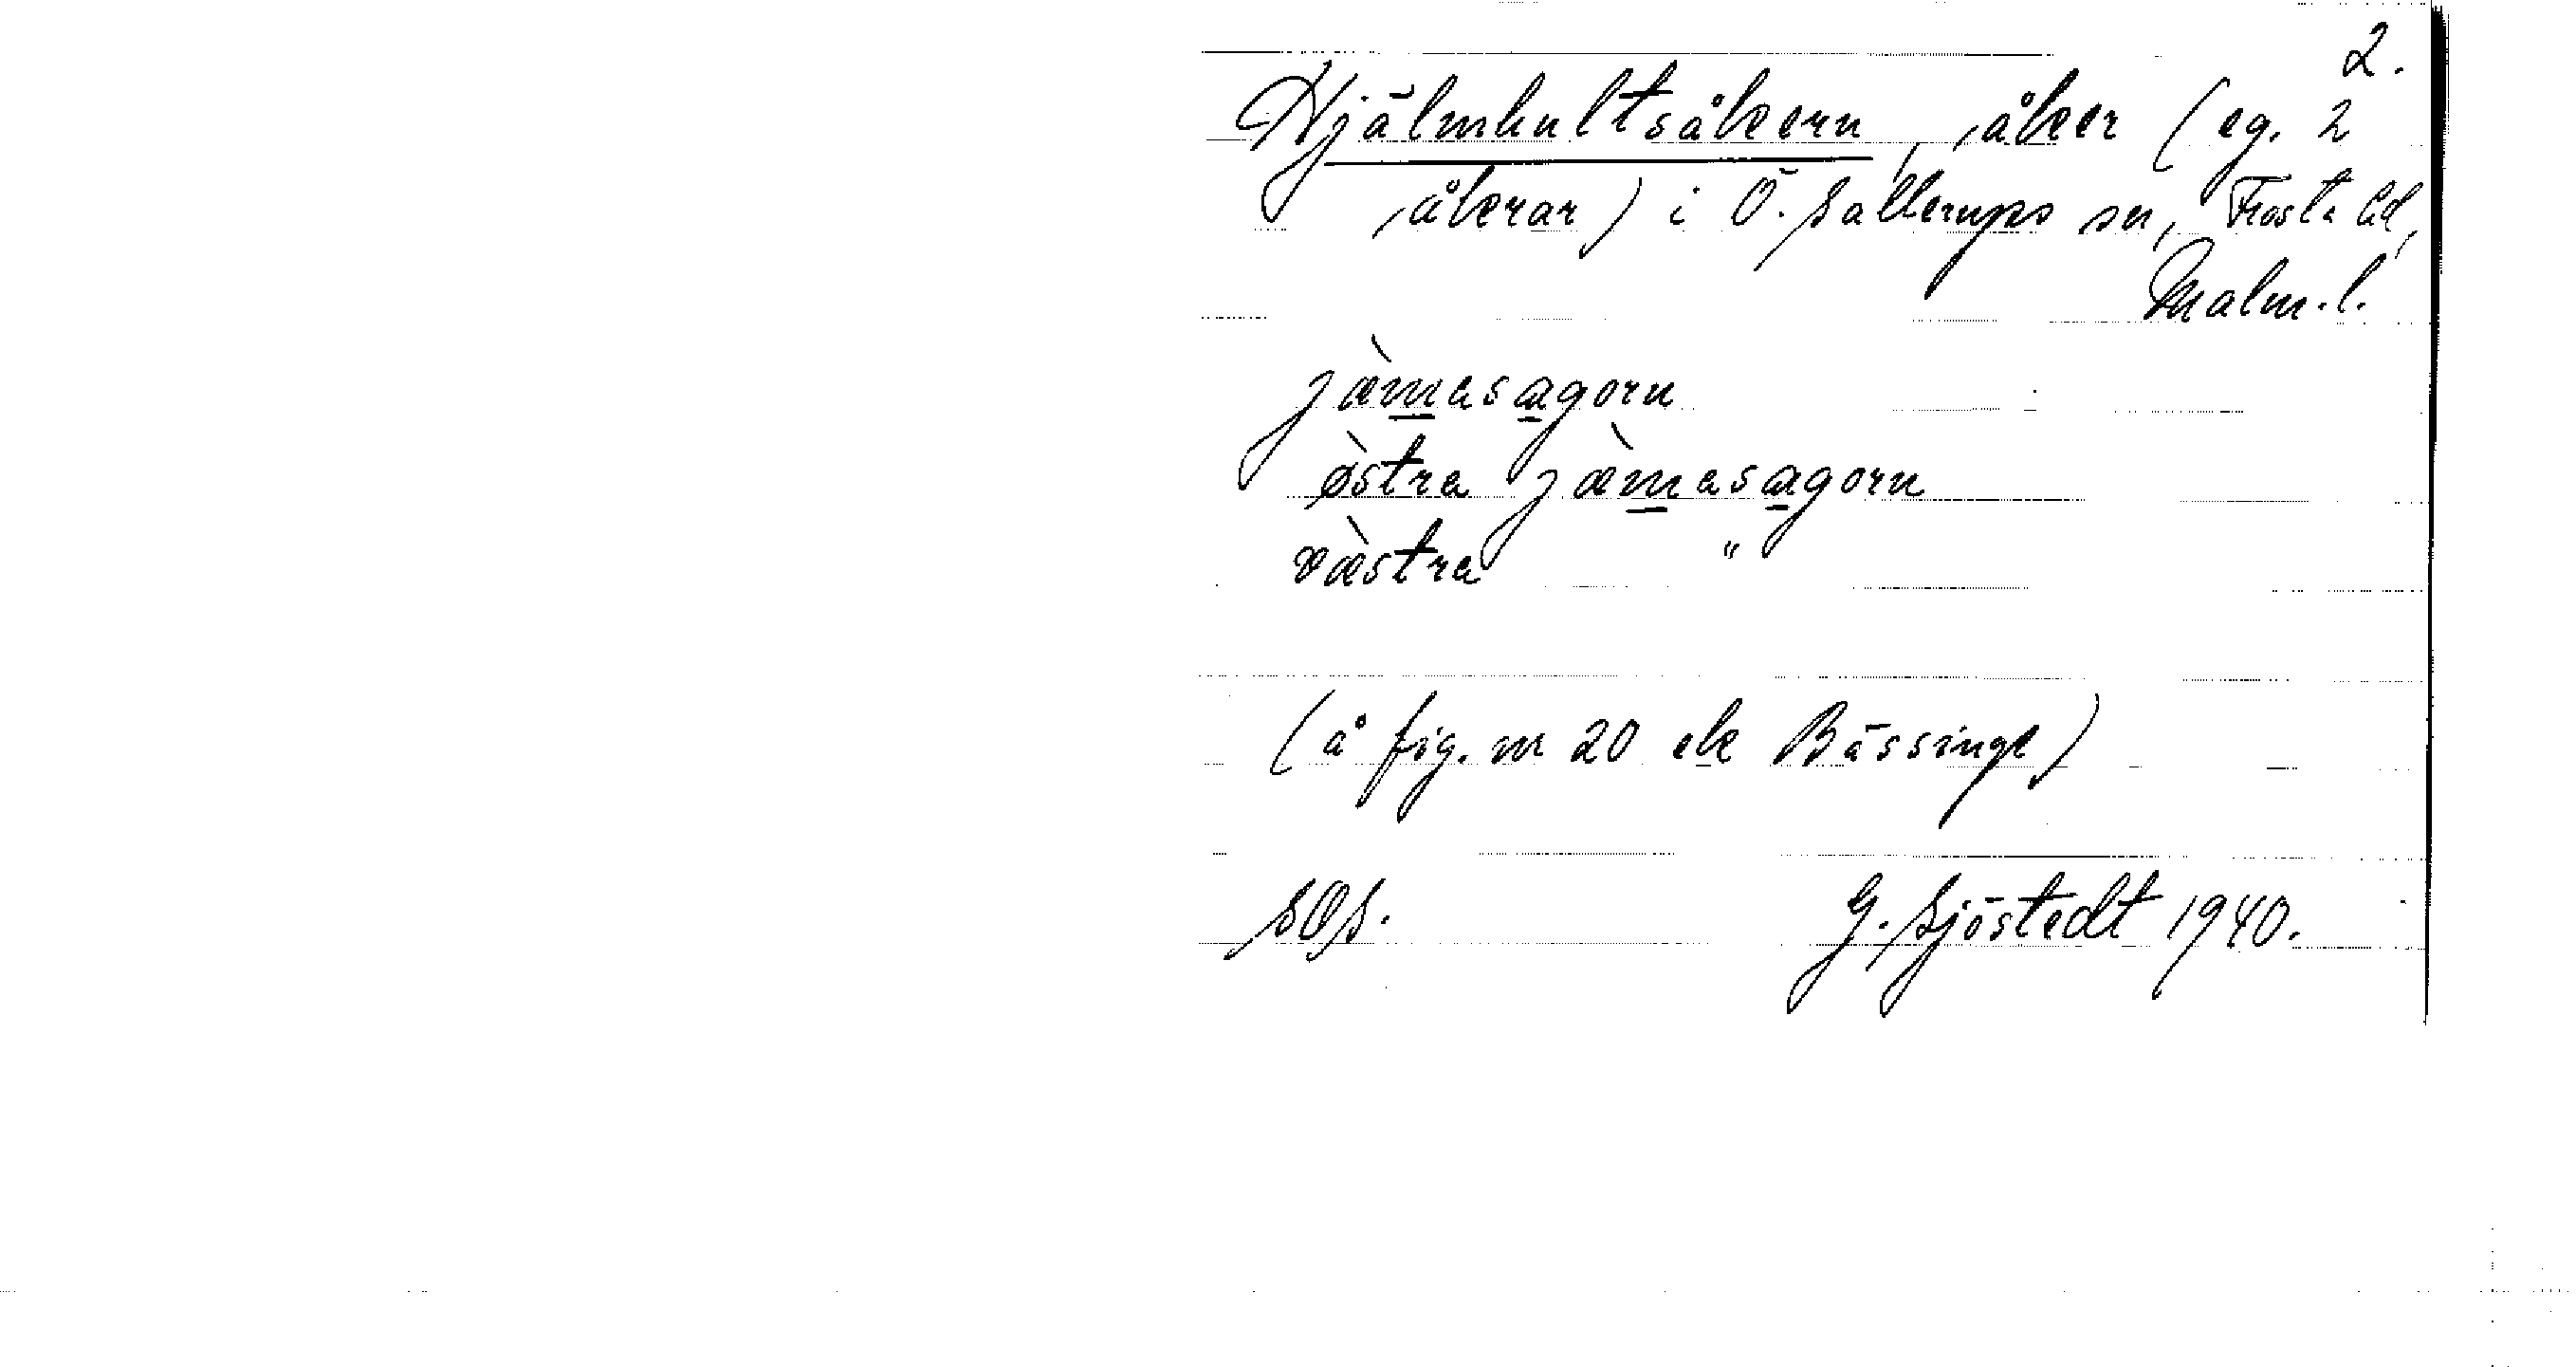 2.
Hjälmhultsåkern, åker (eg. 2
åkrar) i Ö. Sallerups sn, Frosta hd,
Malm. l.
jæ̀masagorn
ø̀stra jæ̀masagorn
væ̀stra "
(å fig. nr 20 ek Bässinge)
SOS.
G. Sjöstedt 1940.